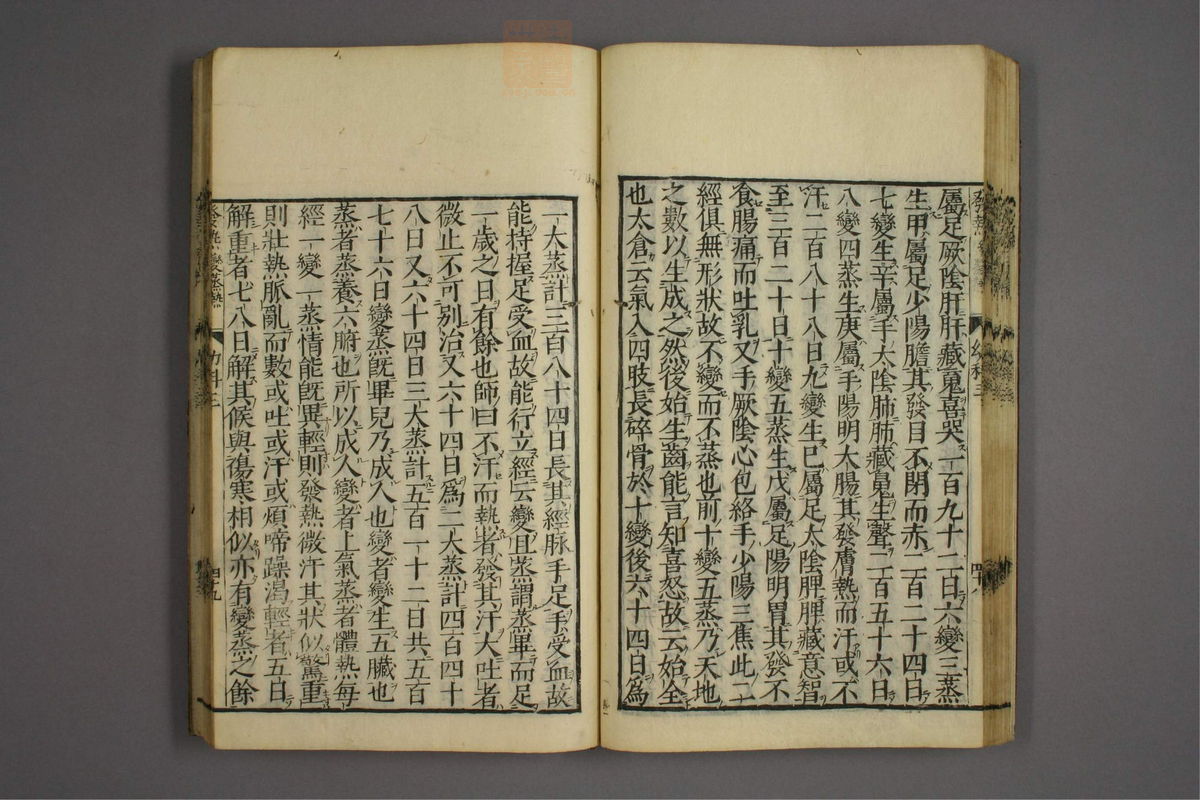 屬足厥陰肝肝藏䰟喜哭一百九十二日六變三蒸
生甲屬足少陽膽其發目不閉而赤二百二十四日
七變生辛屬手太陰肺肺藏䰟生聲二百五十六日
八變四蒸生庚屬手陽明大腸其發膚熱而汗或不
汗二百八十八日九變生巳屬足太陰脾脾藏意智
至三百二十日十變五蒸生戊屬足陽明胃其發不
食腸痛而吐乳又手厥陰心包絡手少陽三焦此二
經俱無形狀故不變而不蒸也前十變五蒸乃天地
之數以生成之然後始生齒能言知喜怒故云始全
也太倉云氣入四肢長碎骨於十變後六十四日爲
一大蒸計三百八十四日長其經脉手足手受血故
能持握足受血故能行立經云變且蒸謂蒸畢而足
一歲之日有餘也師曰不汗而熱者發其汗大吐者
微止不可别治又六十四日爲二大蒸計四百四十
八日又六十四日三大蒸計五百一十二日共五百
七十六日變蒸旣畢兒乃成人也變者變生五臟也
蒸者蒸養六腑也所以成人變者上氣蒸者體熱每
經一變一蒸情能旣異輕則發熱微汗其狀似驚重
則壯熱脈亂而數或吐或汗或煩啼躁渴輕者五日
解重者七八日解其候與傷寒相似亦有變蒸之餘
發熱 變蒸熱
幼科三
四十九